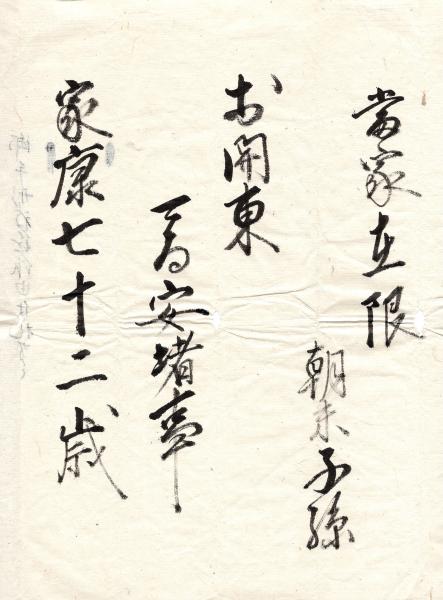 當家在限
朝末子孫
於関東
可為安堵事
家康七十二歳